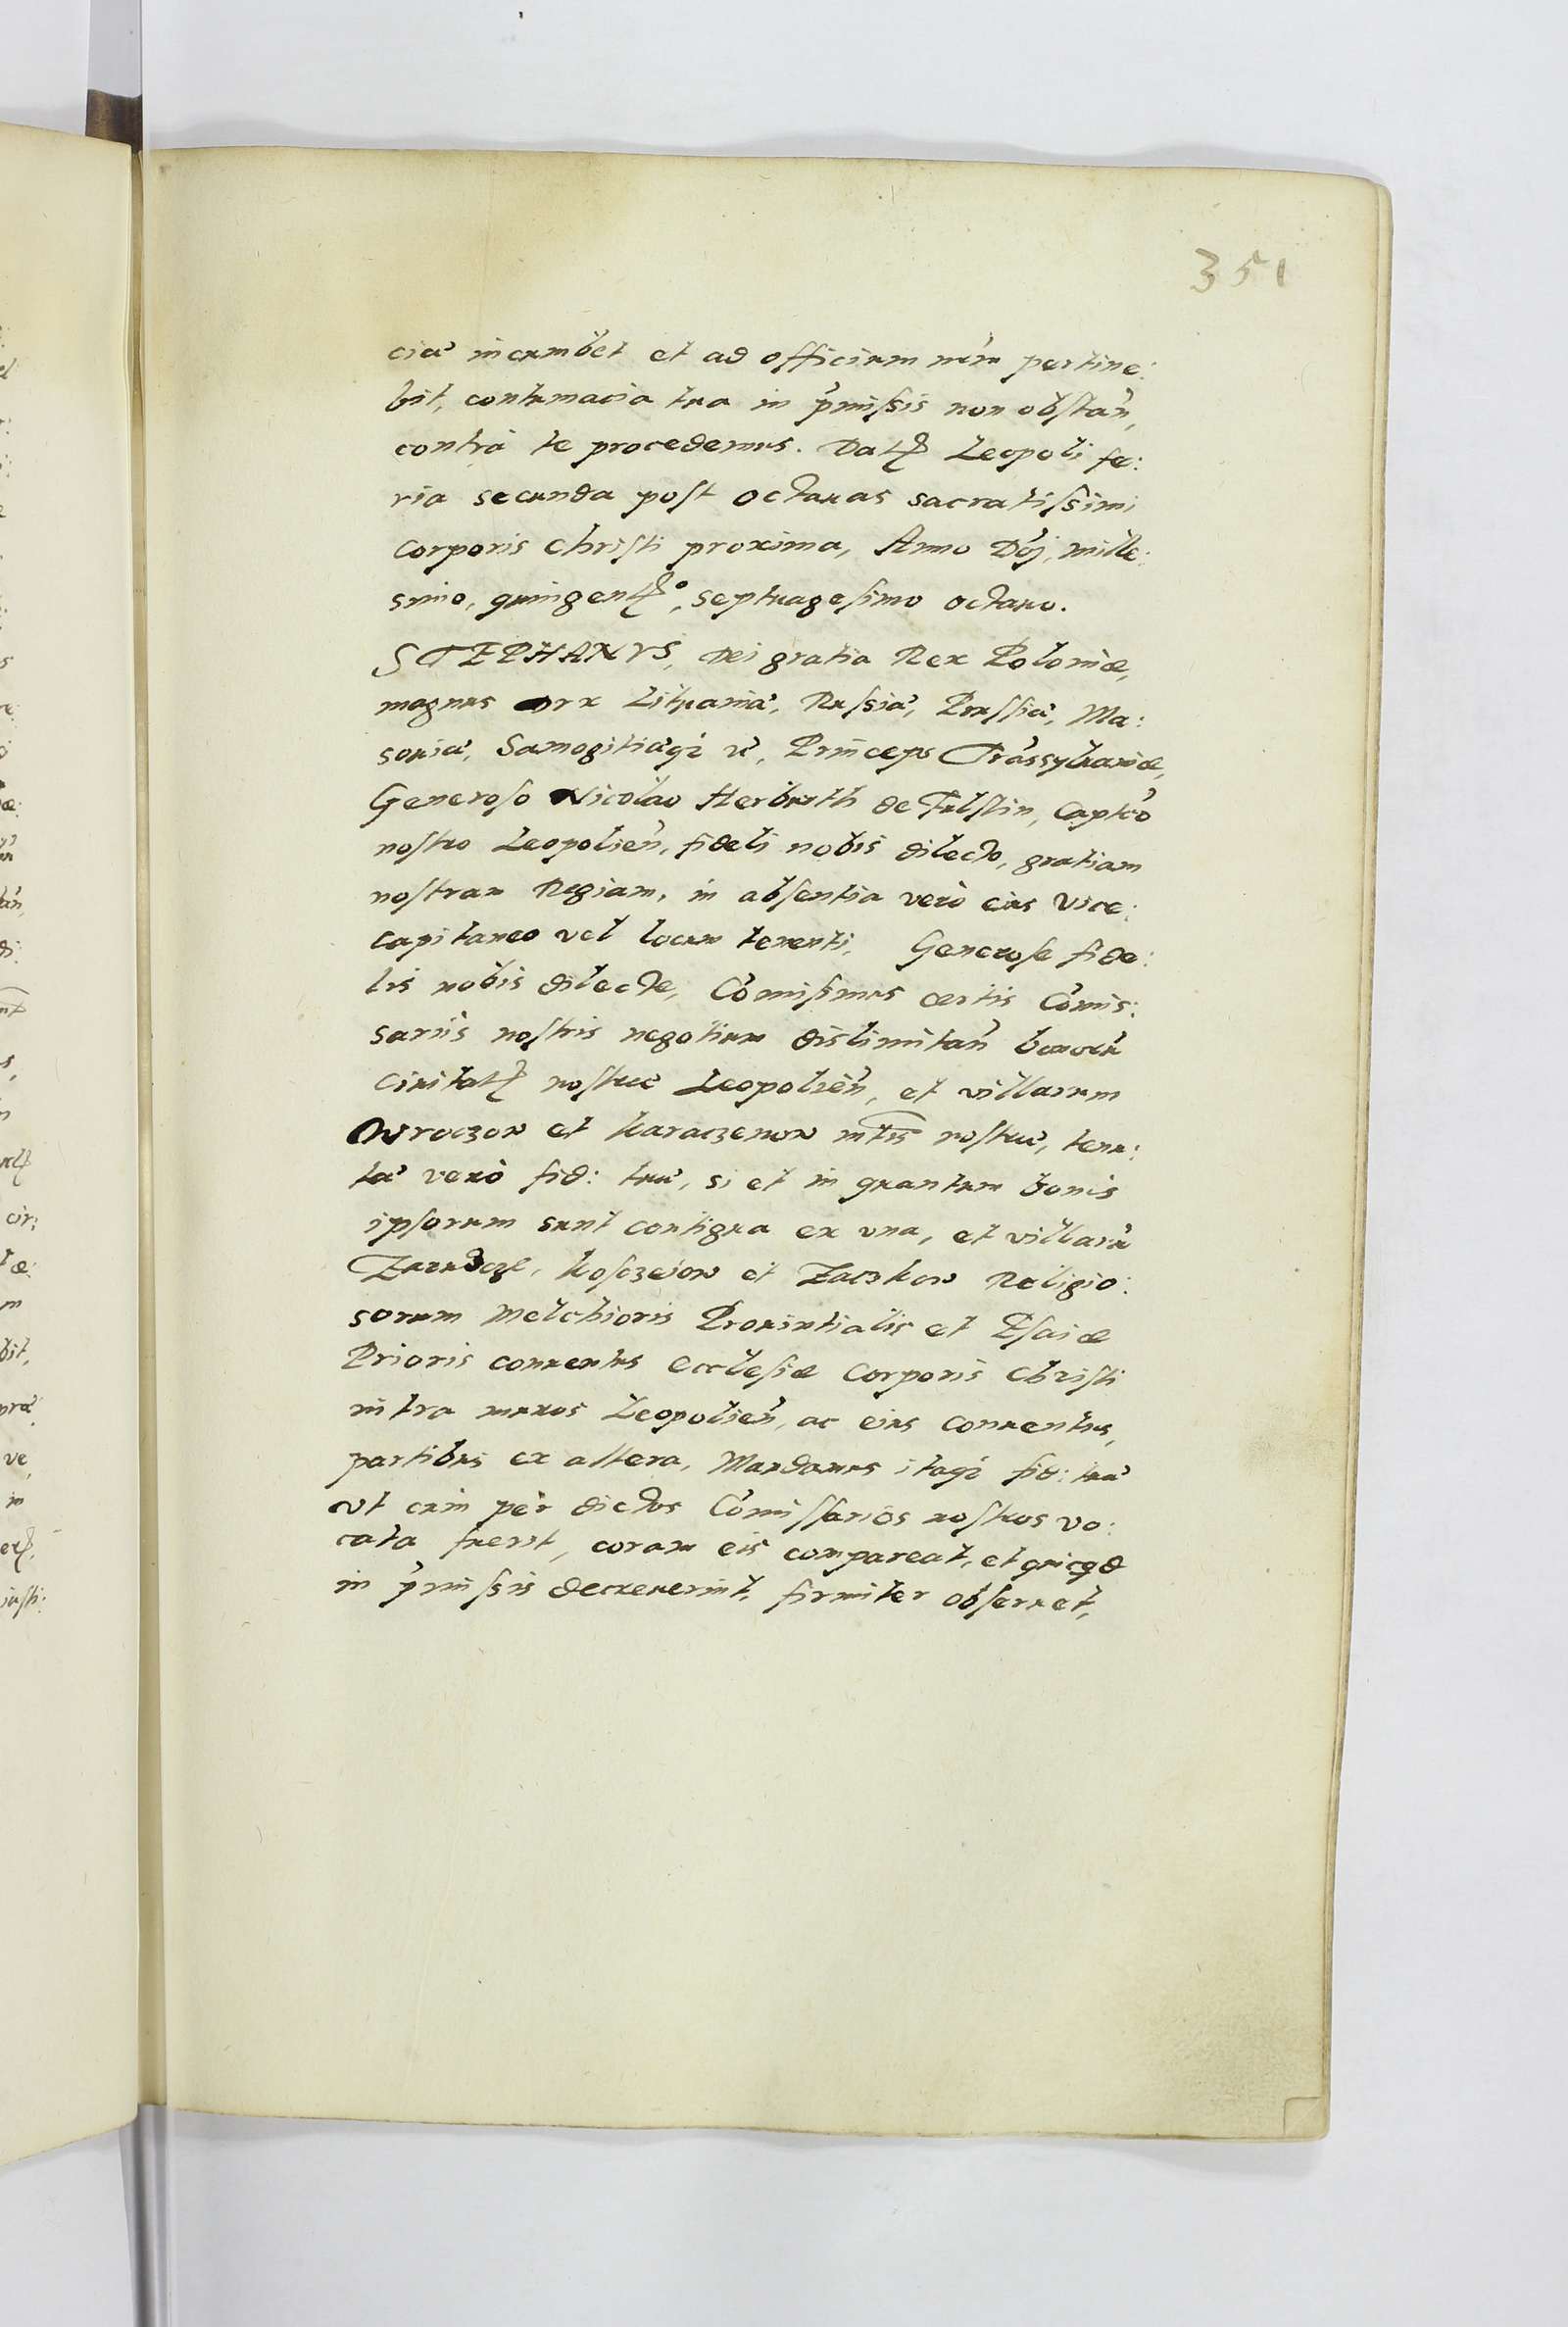 351
ciæ incumbet et ad officium nr̃m pertine:
bit, contumacia tua in p̃missis non obstañ,
contrà te procedemus. Datꝭ Leopoli fe:
ria secunda post octauas sacratissimi
corporis Christi proxima, Anno Dñj, mille:
simo, quingentꝭo, septuagesimo octauo.
STEPHANVS, Dei gratia Rex Poloniæ,
magnus Dux Lituaniæ, Russiæ, Prussiæ, Ma:
souiæ, Samogitiæqꝫ ꝛc, Princeps Trãssyluaniæ,
Generoso Nicolao Herburth de Fulstin, Capitẽo
nostro Leopolieñ, fideli nobis dilecto, gratiam
nostram Regiam, in absentia verò eius vice:
capitaneo vel locum tenenti, Generose fide:
lis nobis dilecte, Cõmisimus certis Cõmis:
sariis nostris negotium dislimitañ bonorũ
ciuitatꝭ nostræ Leopolieñ, et villarum
Wroczow et Karaczenow mtis nostræ, tenu:
tæ verò fid: tuæ, si et in quantum bonis
ipsorum sunt contigua ex vna, et villarũ
Zarudcze, Kosczeiow et Zaczkow Religio:
sorum Melchioris Prouintialis et Esaiæ
Prioris conuentus ecclesiæ Corporis Christi
intra muros Leopolieñ, ac eius conuentus,
partibus ex altera, Mandamus itaqꝫ fid: tuæ
vt cum per dictos Cõmissarios nostros vo:
cata fuerit, coram eis compareat, et quicqd
in p̃missis decreuerint, firmiter obseruet,